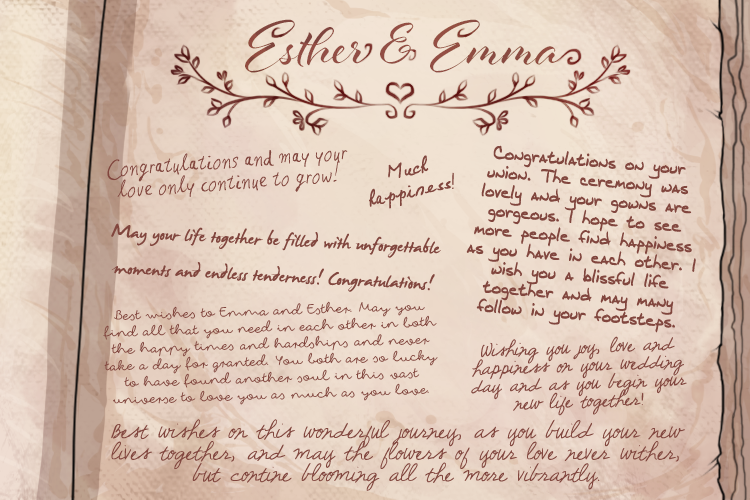 Esther & Emma
Congratulations and may your
love only continue to grow!
Much
happiness!
Congratulations on your
union. The ceremony was
lovely and your gowns are
gorgeous. I hope to see
more people find happiness
as you have in each other. I
wish you a blissful life
together and may many
follow in your footsteps.
May your life together be filled with unforgettable
moments and endless tenderness! Congratulations!
Best wishes to Emma and Esther. May you
find all that you need in each other in both
the happy times and hardships and never
take a day for granted. You both are so lucky
to have found another soul in this vast
universe to love you as much as you love.
Wishing you joy, love and
happiness on your wedding
day and as you begin your
new life together!
Best wishes on this wonderful journey, as you build your new
lives together, and may the flowers of your love never wither,
but contine blooming all the more vibrantly.